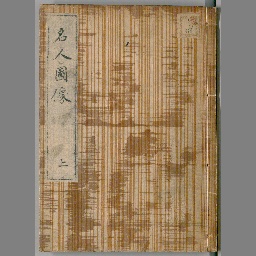 名人圖像
上